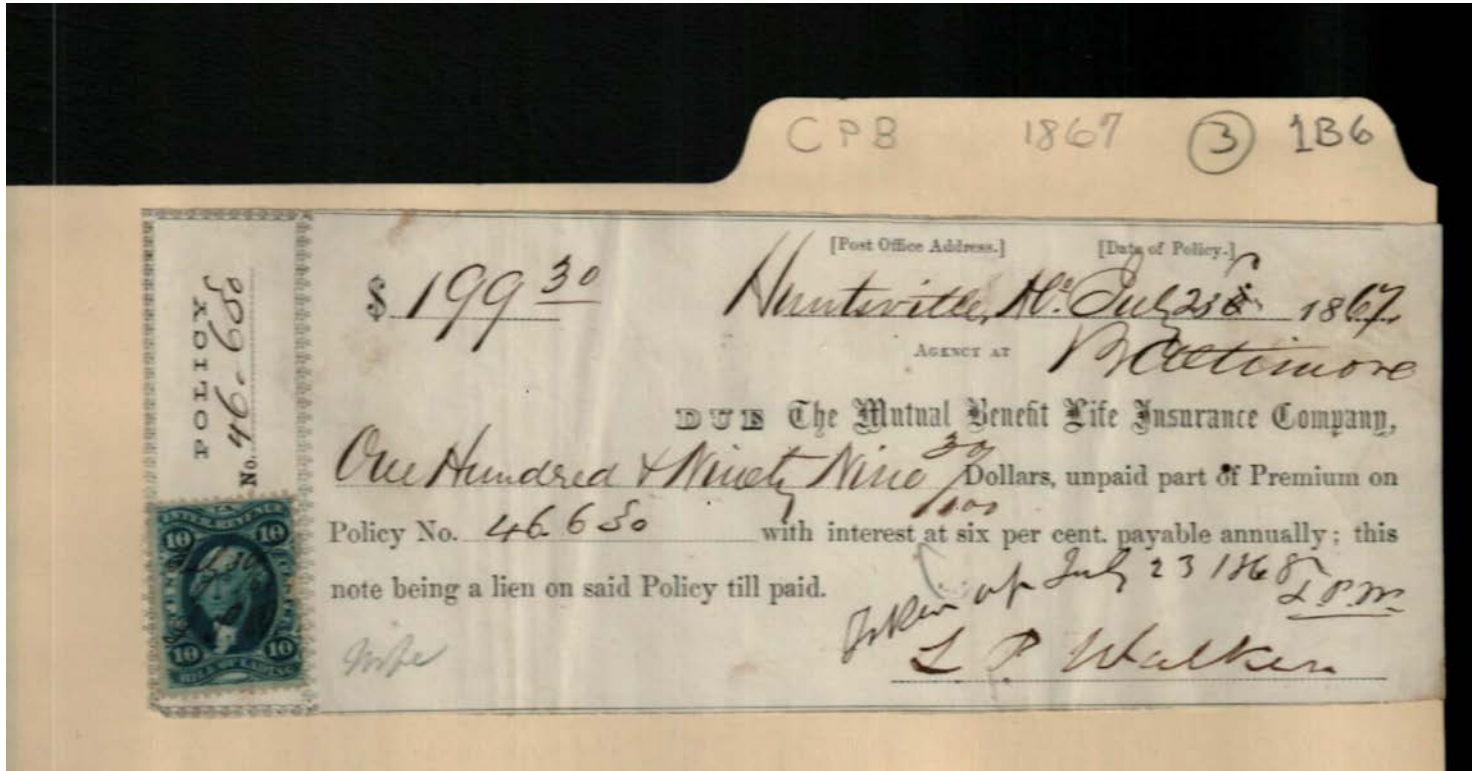 CPB 1867 3 1B6
POLICY
No. 46.650
$ 199 30
[Post Office Address.] [Date of Policy.]
Huntsville, Al. July 23 1867
AGENCY AT Baltimore
DUE The Mutual Benefit Life Insurance Company,
One Hundred & Ninety Nine 30/100 Dollars, unpaid part of Premium on
Policy No. 46.650 with interest at six per cent. payable annually; this
note being a lien on said Policy till paid.
Taken up July 23 1868
L P Walker
10 10
10 10
BILL OF LADING